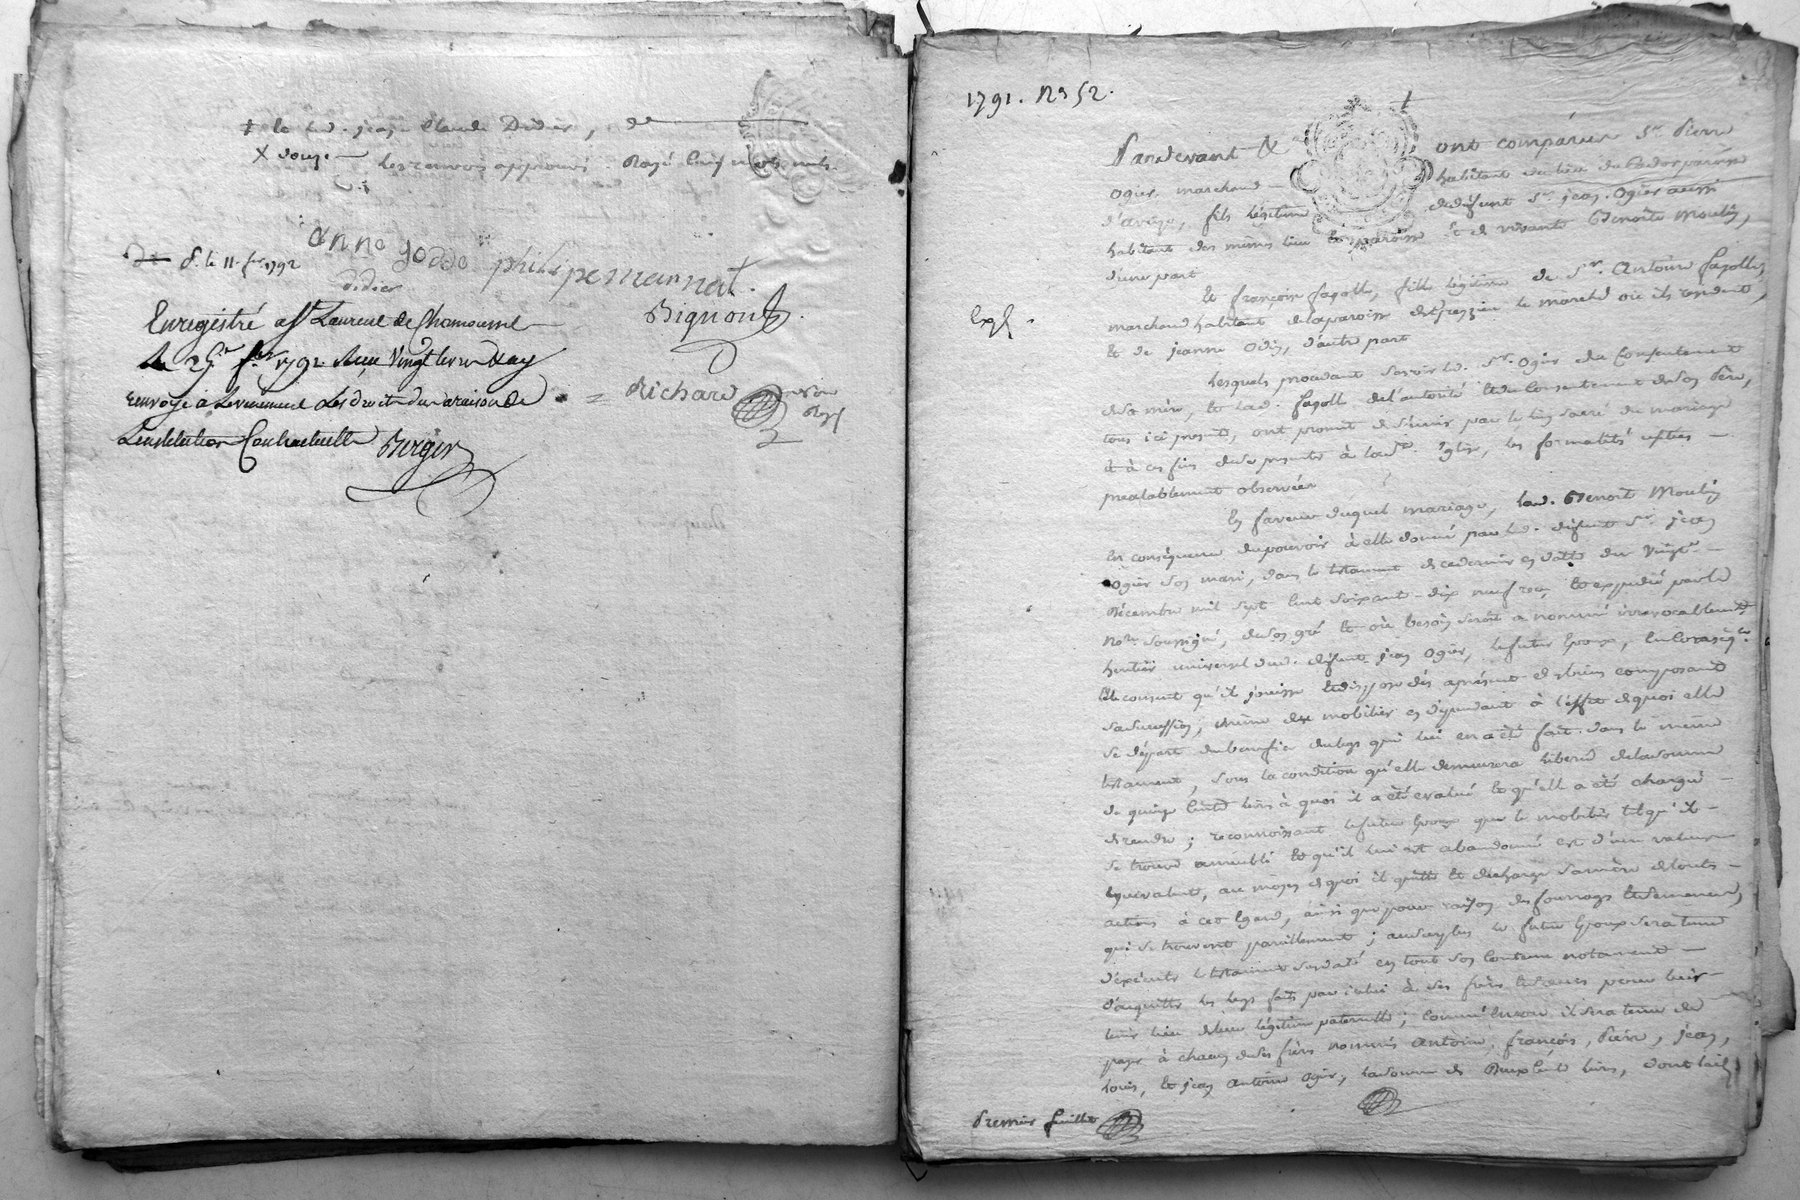 + le sud. jean Claude Didier, de
X douze les renvois approuvés. Rayé huit mots nuls.
anne godde philipe marnat.
D. le 11. fer 1792
didier
Bignon
Enregistré a St Laurent de Chamousset
le 1792 Reçu Vingt
renvoyé à Levenement Les droits à raison de
Linstitution Contractuelle Berger
Richard
1791. No 52.
Pardevant &a ont comparu Sr. Pierre
Ogier marchand habitant du lieu paroisse
d'aveize, fils légitime de défunt Sr. jean Ogier aussi
habitant des mêmes lieu et paroisse et de vivante Benoite Moulin,
d'une part
Et françoise fayolle, fille légitime de Sr. Antoine fayolle,
marchand habitant de la paroisse de le marché où ils resident,
et de jeanne d'autre part
Expé.
Lesquels procedant savoir led. Sr. Ogier du Consentement
de sa mère, et lad. fayolle de l'autorité et du Consentement de son Père,
tous ici presents, ont promit de s'unir par le lien sacré du mariage
et à ces fins de se presenter à lad. Eglise, les formalités
prealablement observées
En faveur duquel mariage, lad. Benoite Moulin
en conséquence du pouvoir à elle donné par led. défunt Sr. jean
Ogier son mari, dans le testament de ce dernier en datte du Vingt
Décembre mil sept Cent soixante-dix neuf reçu et expedié par le
Nore. soussigné, de son gré et où besoin seroit a nommé irrevocablement
heritier universel dud. défunt jean Ogier, le futur Epoux, en Conséqce.
Elle consent qu'il jouisse et dispose dès aprésent des biens composant
sa succession, même du mobilier en dependant à l'effet de quoi elle
se départ du benefice du legs qui lui en a été fait dans le même
testament, sous la condition qu'elle demeurera liberée de la somme
de quinze Cents livres à quoi il a été evalué et qu'elle a été chargée
de rendre; reconnoissant le futur Epoux que le mobilier tel qu'il
se trouve ameublé et qu'il lui est abandonné est d'une valeur
equivalente, au moyen de quoi il quitte et décharge sa mère de toutes
actions à cet Egard, ainsi que pour raison des fourrages et semences,
qui se trouvent pareillement; au surplus le futur Epoux sera tenu
d'executer le testament susdaté en tout son Contenu notamment
d'acquitter les legs faits par icelui à ses frères et soeurs pour leur
tenir lieu de leur légitime paternelle; Comme encore il sera tenu de
payer à chacun de ses frères nommés Antoine, françois, Pierre, jean,
Louis, et jean Antoine Ogier, la somme de Deux Cents livres, dont
Premier feuillet